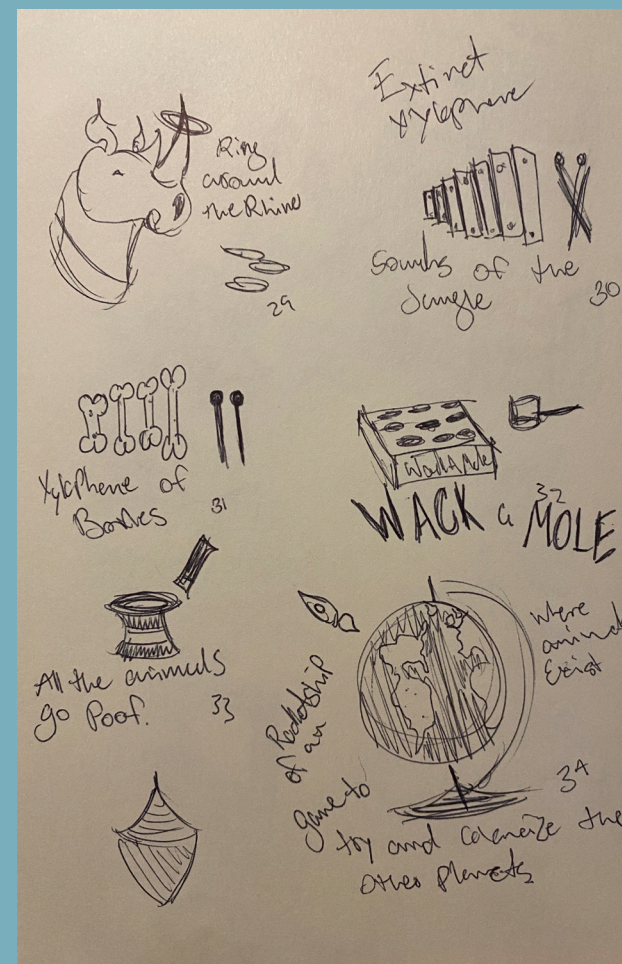 Ring
around
the Rhino
29
Extinct
xylophone
Sounds of the
Jungle
30
Xylophone of
Bones
31
Wack A Mole
32
WACK a MOLE
All the animals
go Poof.
33
where
animals
Exist
of
an
34
game to
try and colonize the
other planets